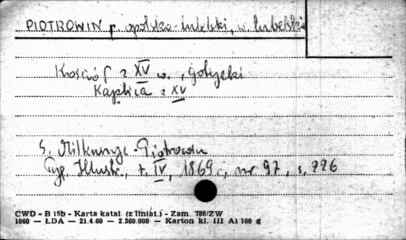 PIOTROWIN p. opolsko-lubelski, w. lubelskie
Kościół z XV w., gotycki
Kaplica z XV
S. Milkuszyc - Piotrowin
Tyg. Illustr. t. IV, 1869, nr 97, s. 226
CWD - B 15b - Karta katal. (z liniat.) - Zam. 788/ZW
1060 — ŁDA — 21.4.60 — 2.360.000 — Karton kl. III A1 160 g